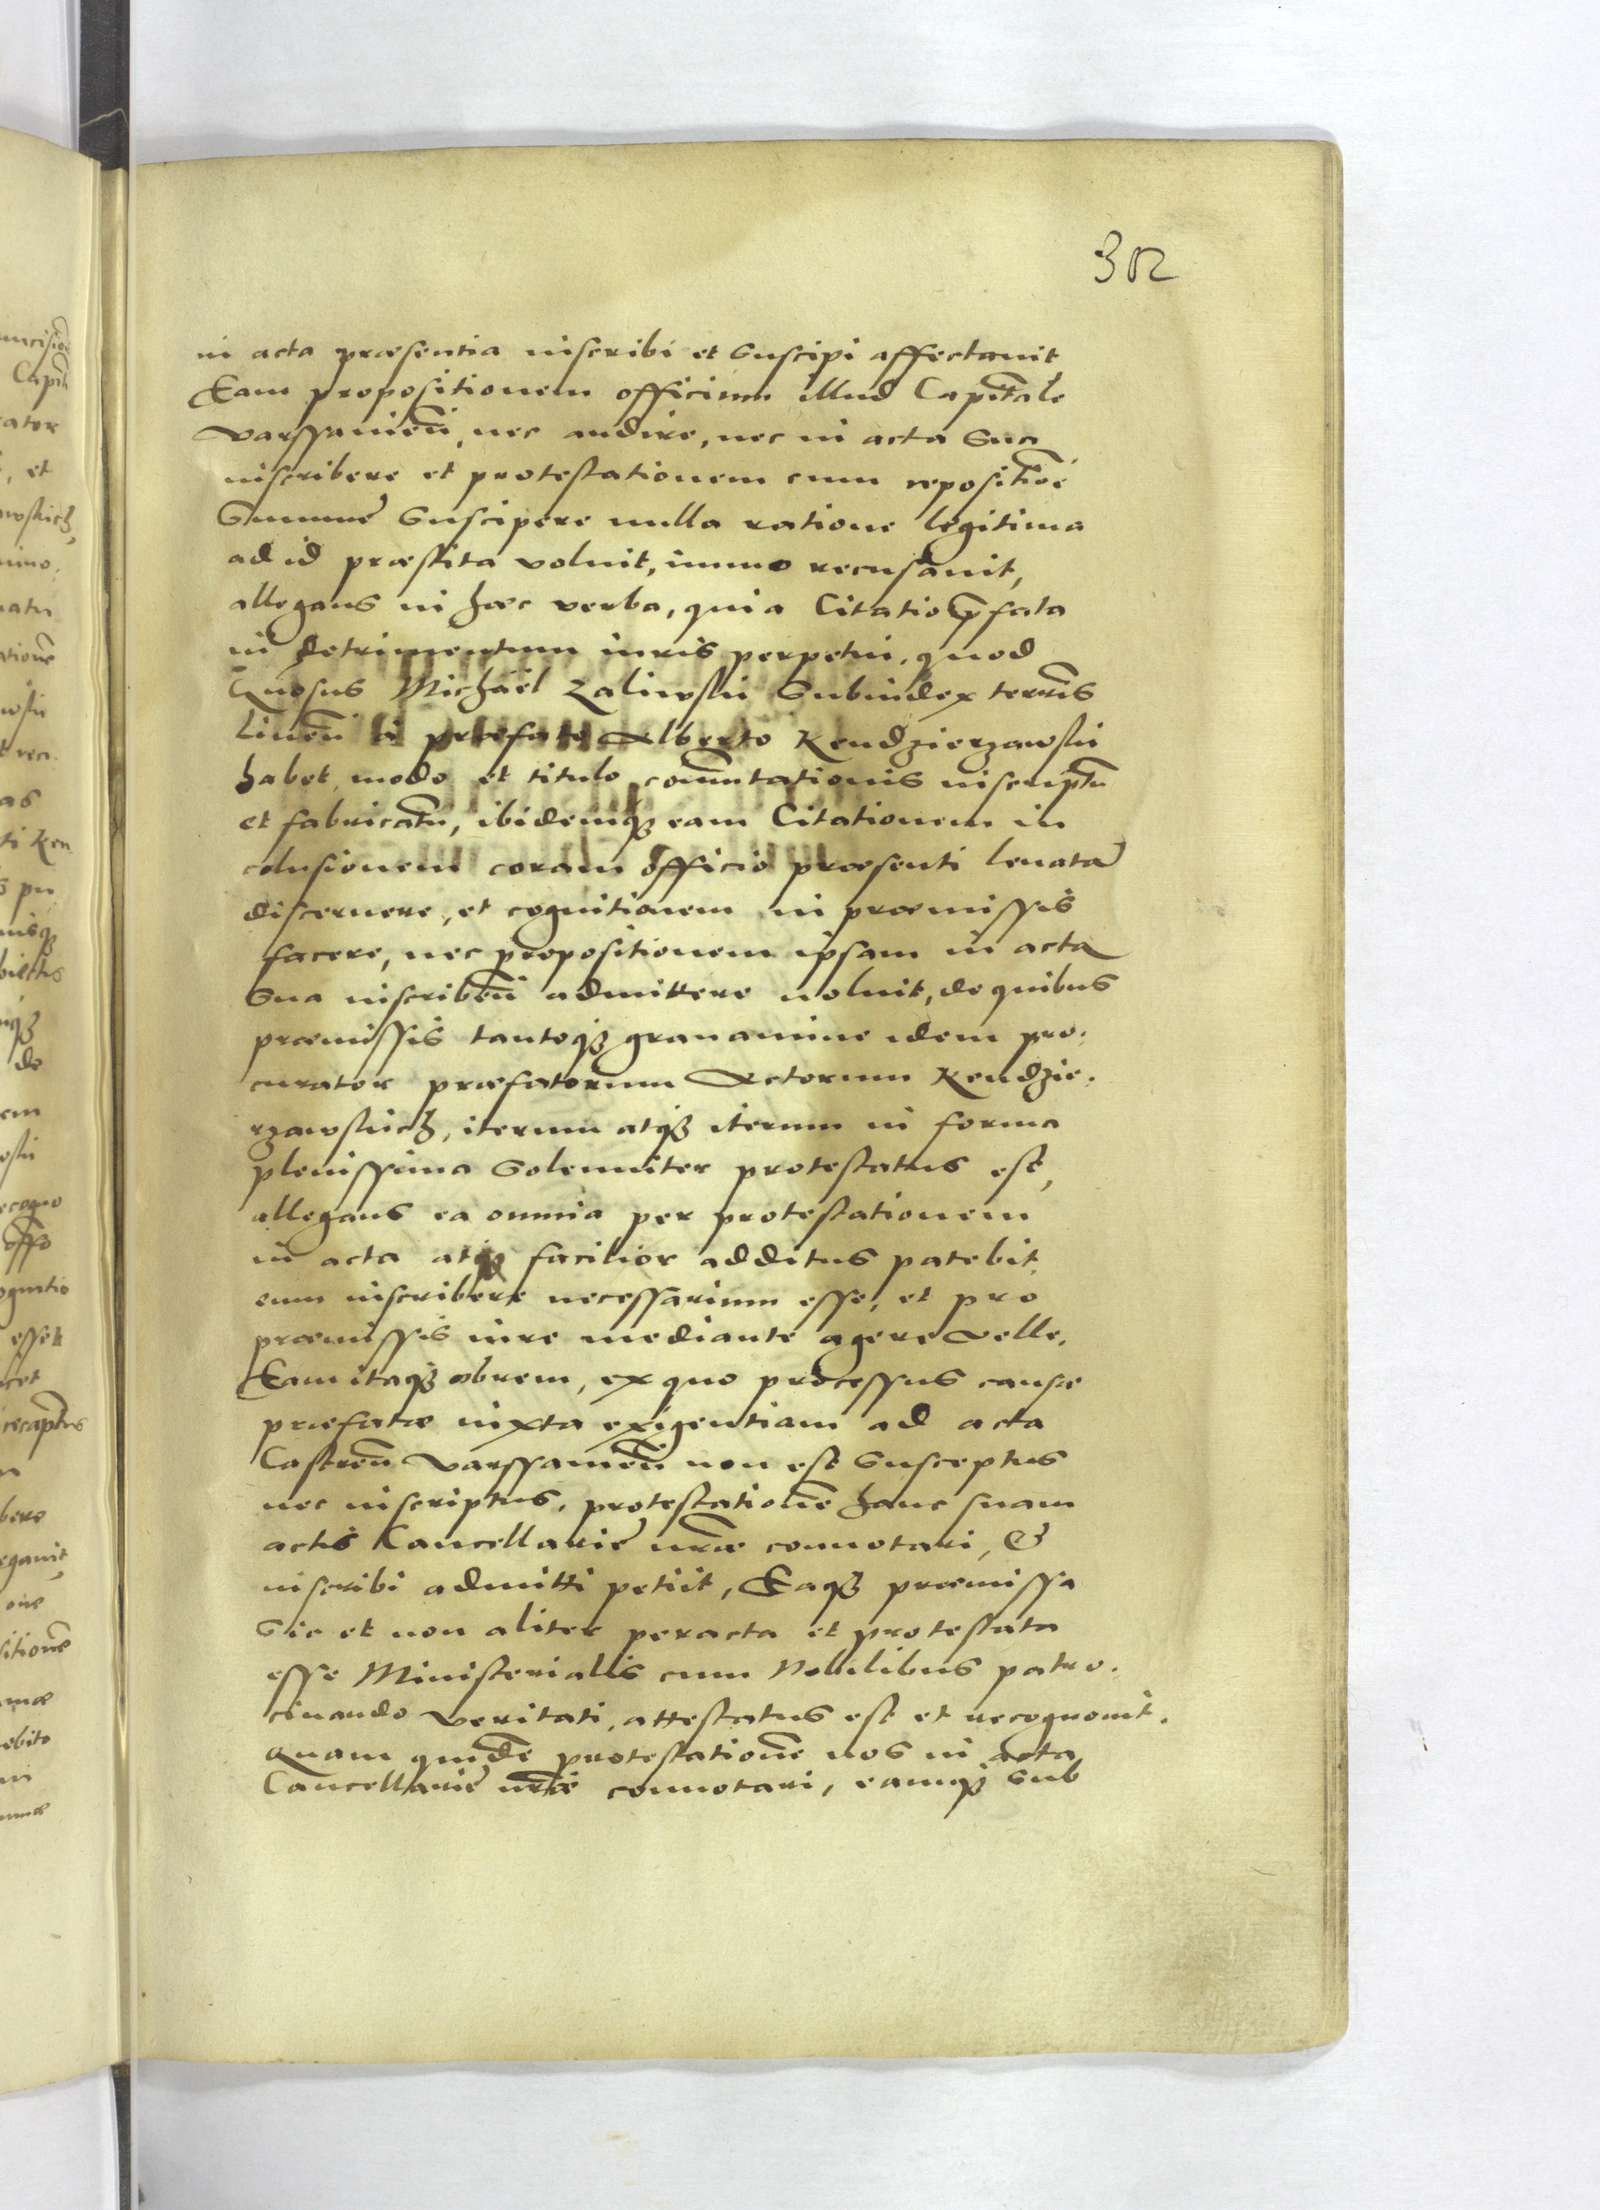 312
in acta præsentia inscribi et suscipi affectauit
Eam propositionem officium illud Capitale
Varssauien̄, nec audire, nec in acta sua
inscribere et protestationem cum repositiōe
Summæ suscipere nulla ratione legitima
ad id præstita voluit, immo recusauit,
allegans in hæc verba, quia Citatio p̄fata
in detrimentum iuris perpetui, quod
Gn̄osus Michäel Zaliwski Subiudex terrīs
Liuen̄ à præfato Alberto Kendzierzawski
habet, modo et titulo com̄utationis inscriptū
et fabricatū, ibidemq3 eam Citationem in
colusionem coram officio præsenti leuatā
discernere, et cognitionem in præmissis
facere, nec propositionem ipsam in acta
sua inscriben̄ admittere noluit, de quibus
præmissis tantoq3 grauamine idem pro.
curator præfatorum Actorum Kendzie.
rzawskich, iterum atq3 iterum in forma
plenissima solenniter protestatus est,
allegans ea omnia per protestationem
in acta atq3 facilior additus patebit
eum inscribere necessarium esse, et pro
præmissis iure mediante agere velle.
Eam itaq3 obrem, ex quo processus causæ
præfatæ iuxta exigentiam ad acta
Castren̄ Varssauien̄ non est susceptus
nec inscriptus, protestationē hanc suam
actis Cancellariæ nr̄æ connotari, &
inscribi admitti petiit, Eaq3 præmissa
sic et non aliter peracta et protestata
esse Ministerialis cum Nobilibus patro.
cinando veritati, attestatus est et recognouit.
Quam quidē protestationē nos in acta
Cancellariæ nr̄æ connotari, eamq3 sub